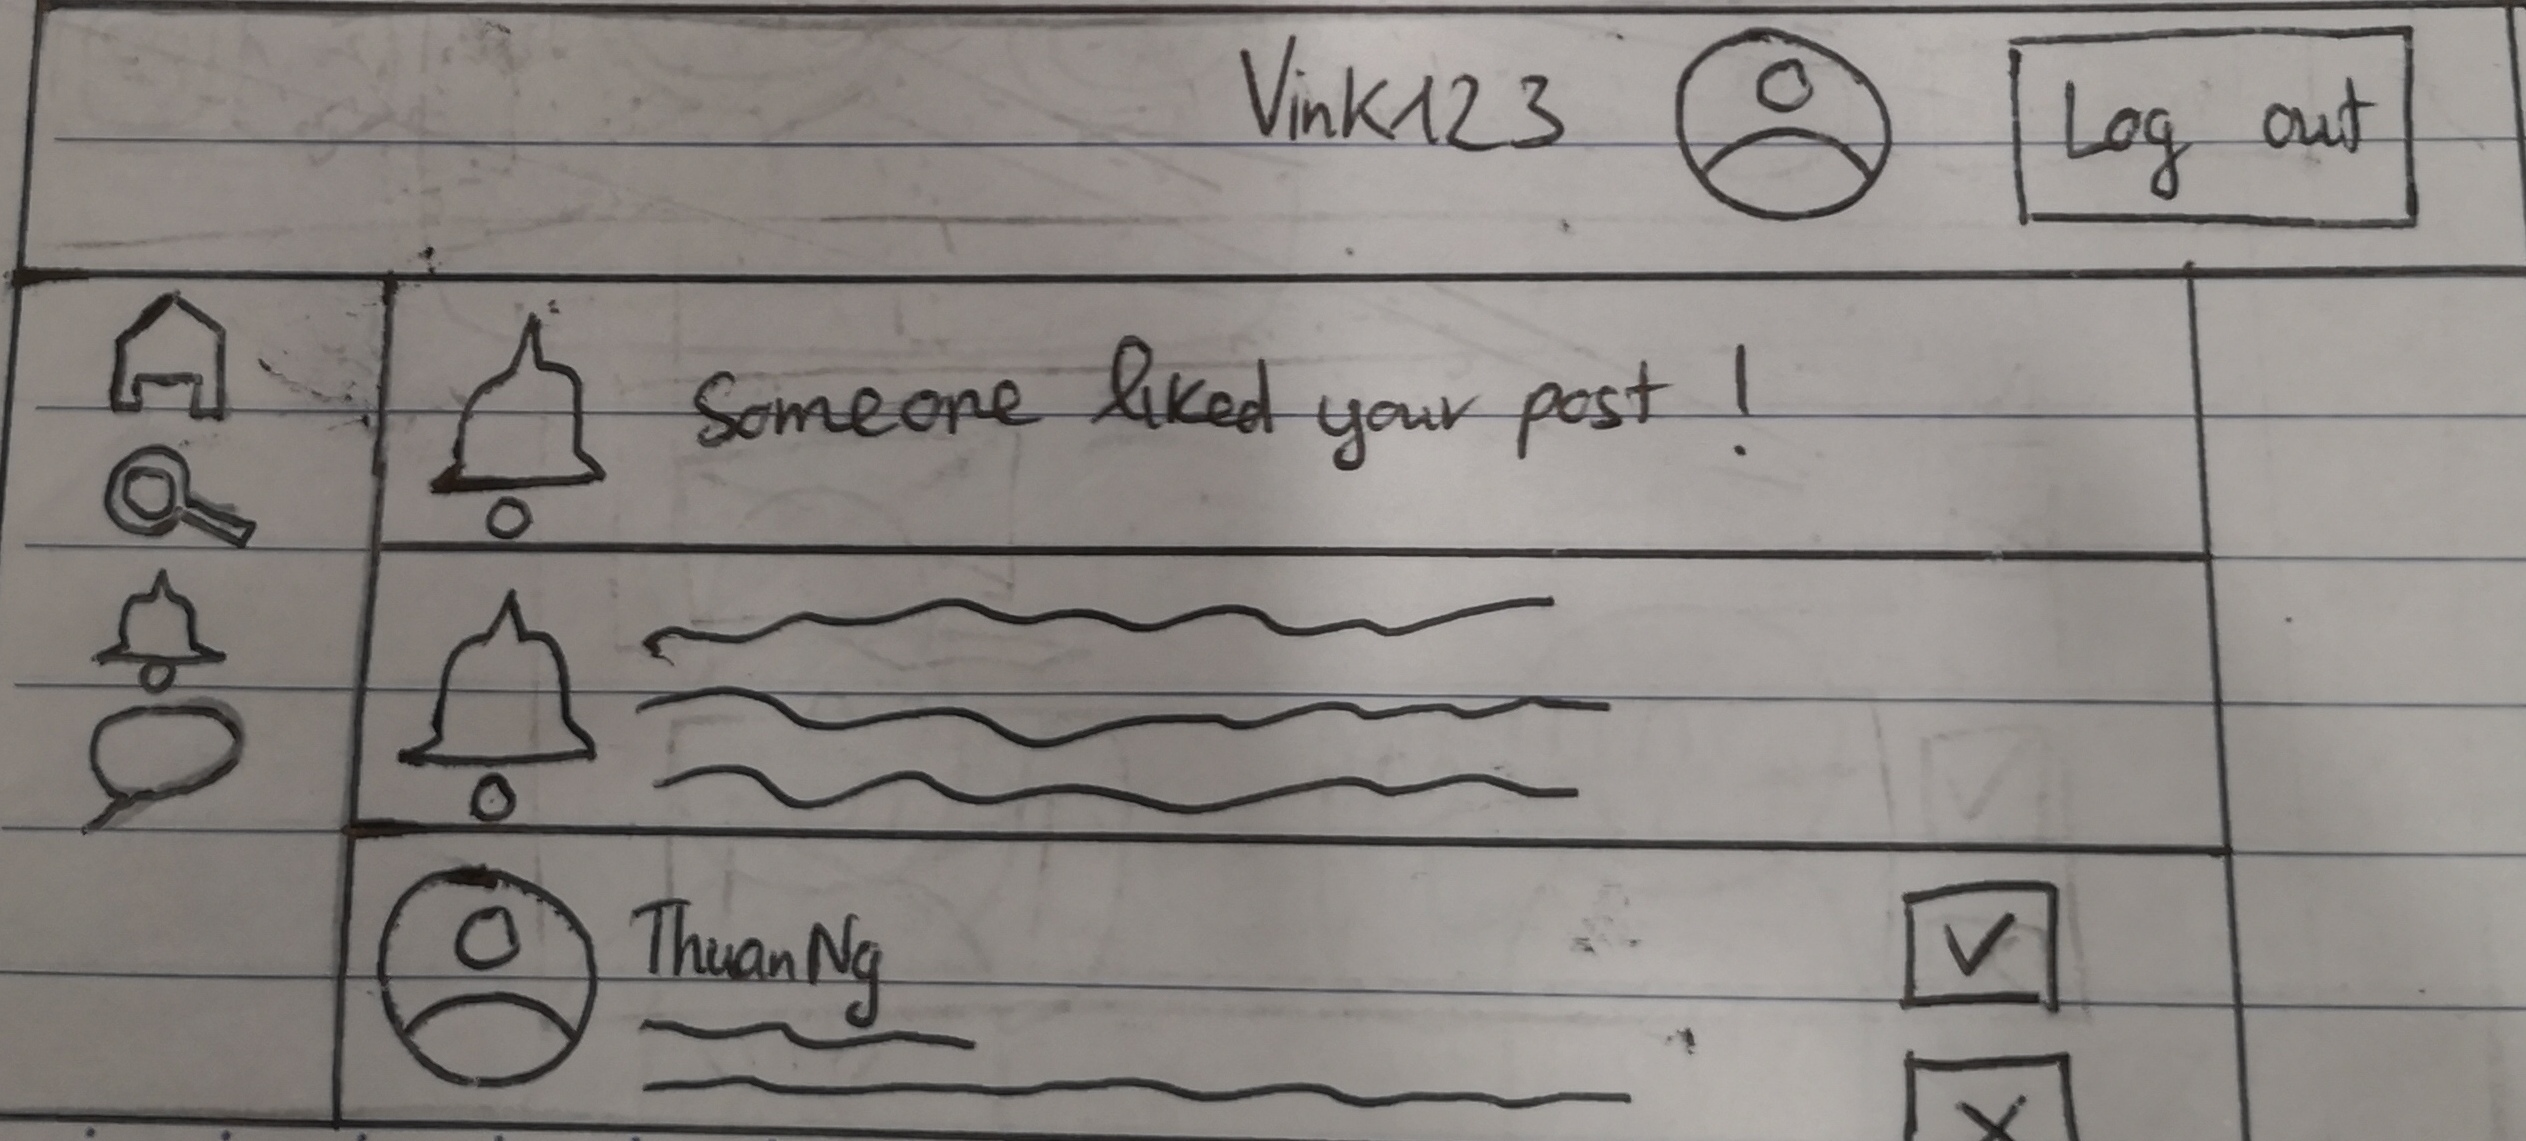 Vink123
Log out
Someone liked your post!
ThuanNg